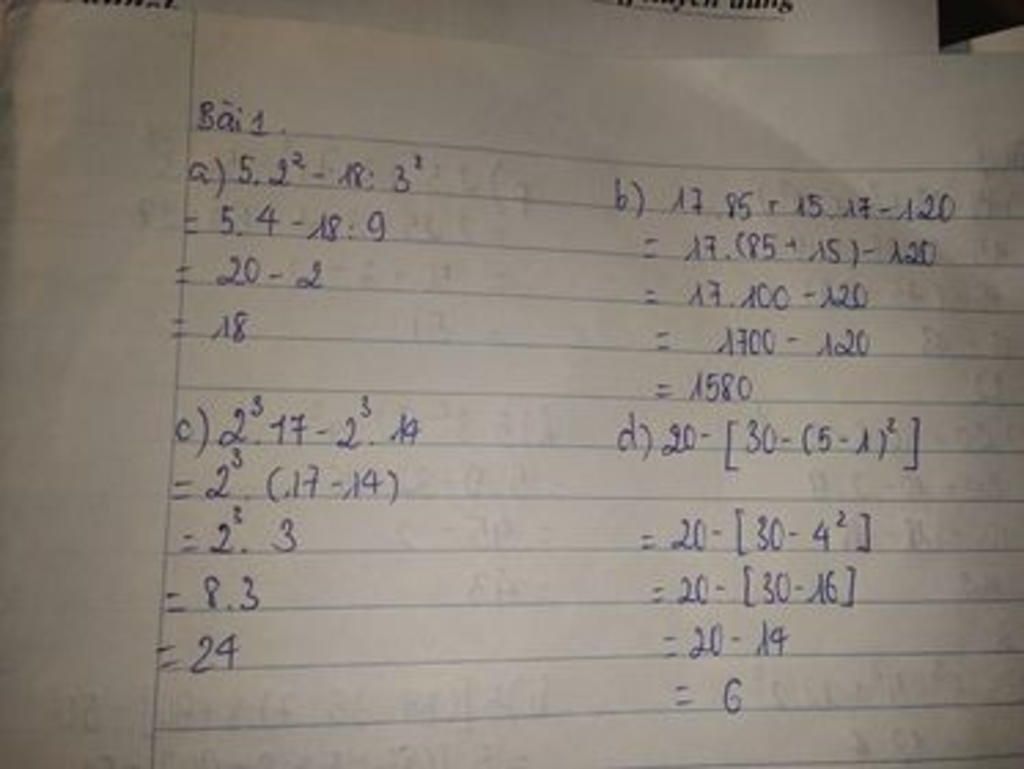 Bài 1.
a) 5.2² - 18: 3²
= 5.4 - 18:9
= 20 - 2
= 18
b) 17 85 + 15.17 - 120
= 17.(85 + 15) - 120
= 17.100 - 120
= 1700 - 120
= 1580
c) 2³.17 - 2³.14
= 2³. (.17 - 14)
= 2³. 3
= 8.3
= 24
d) 20 - [30 - (5 - 1)²]
= 20 - [30 - 4²]
= 20 - [30 - 16]
= 20 - 14
= 6